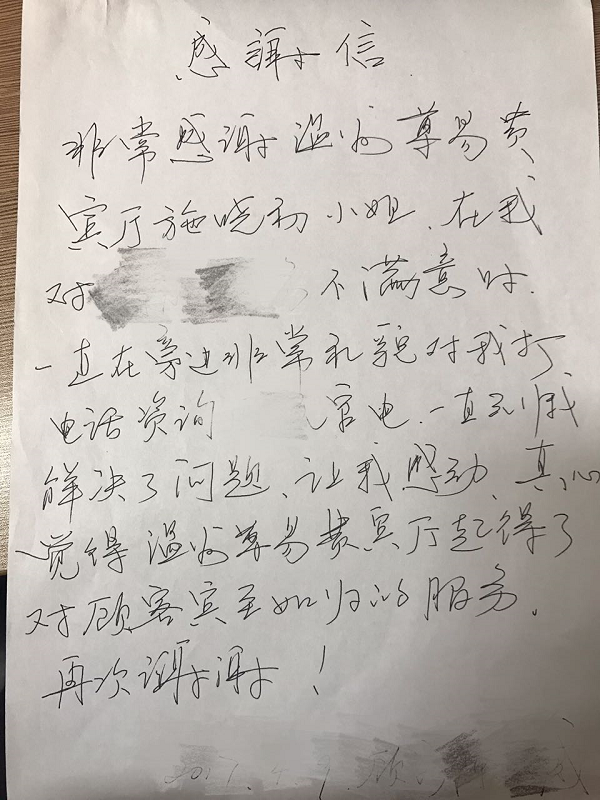 感謝信
非常感谢温州尊易贵
宾厅施晓初小姐.在我
对 不满意时.
一直在旁边非常礼貌对我打
电话资询 官电.一直到帮我
解决了问题、让我感动、真心
觉得温州尊易贵宾厅起得了
对顾客宾至如归的服务.
再次谢谢!
2017.4.